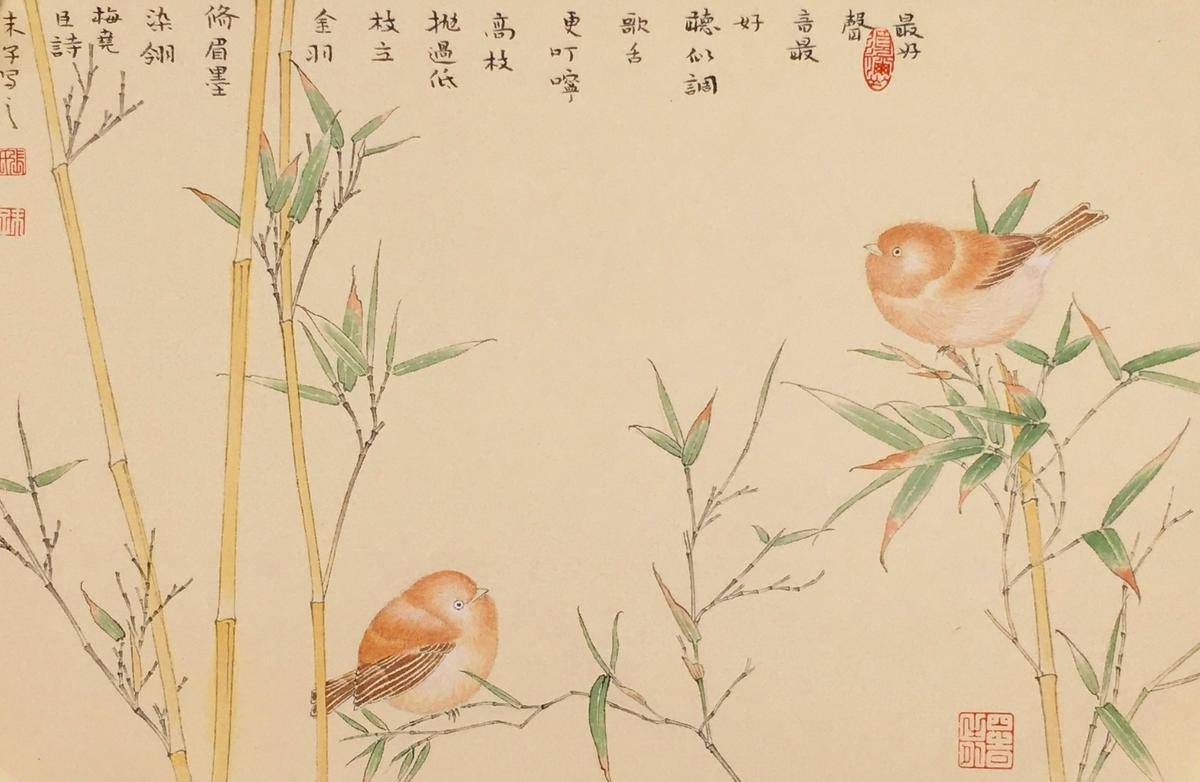 最好
聲
音最
好
聽似調
歌舌
更叮嚀
高枝
拋過低
枝立
金羽
脩眉墨
染翎
梅堯
臣詩
子写之